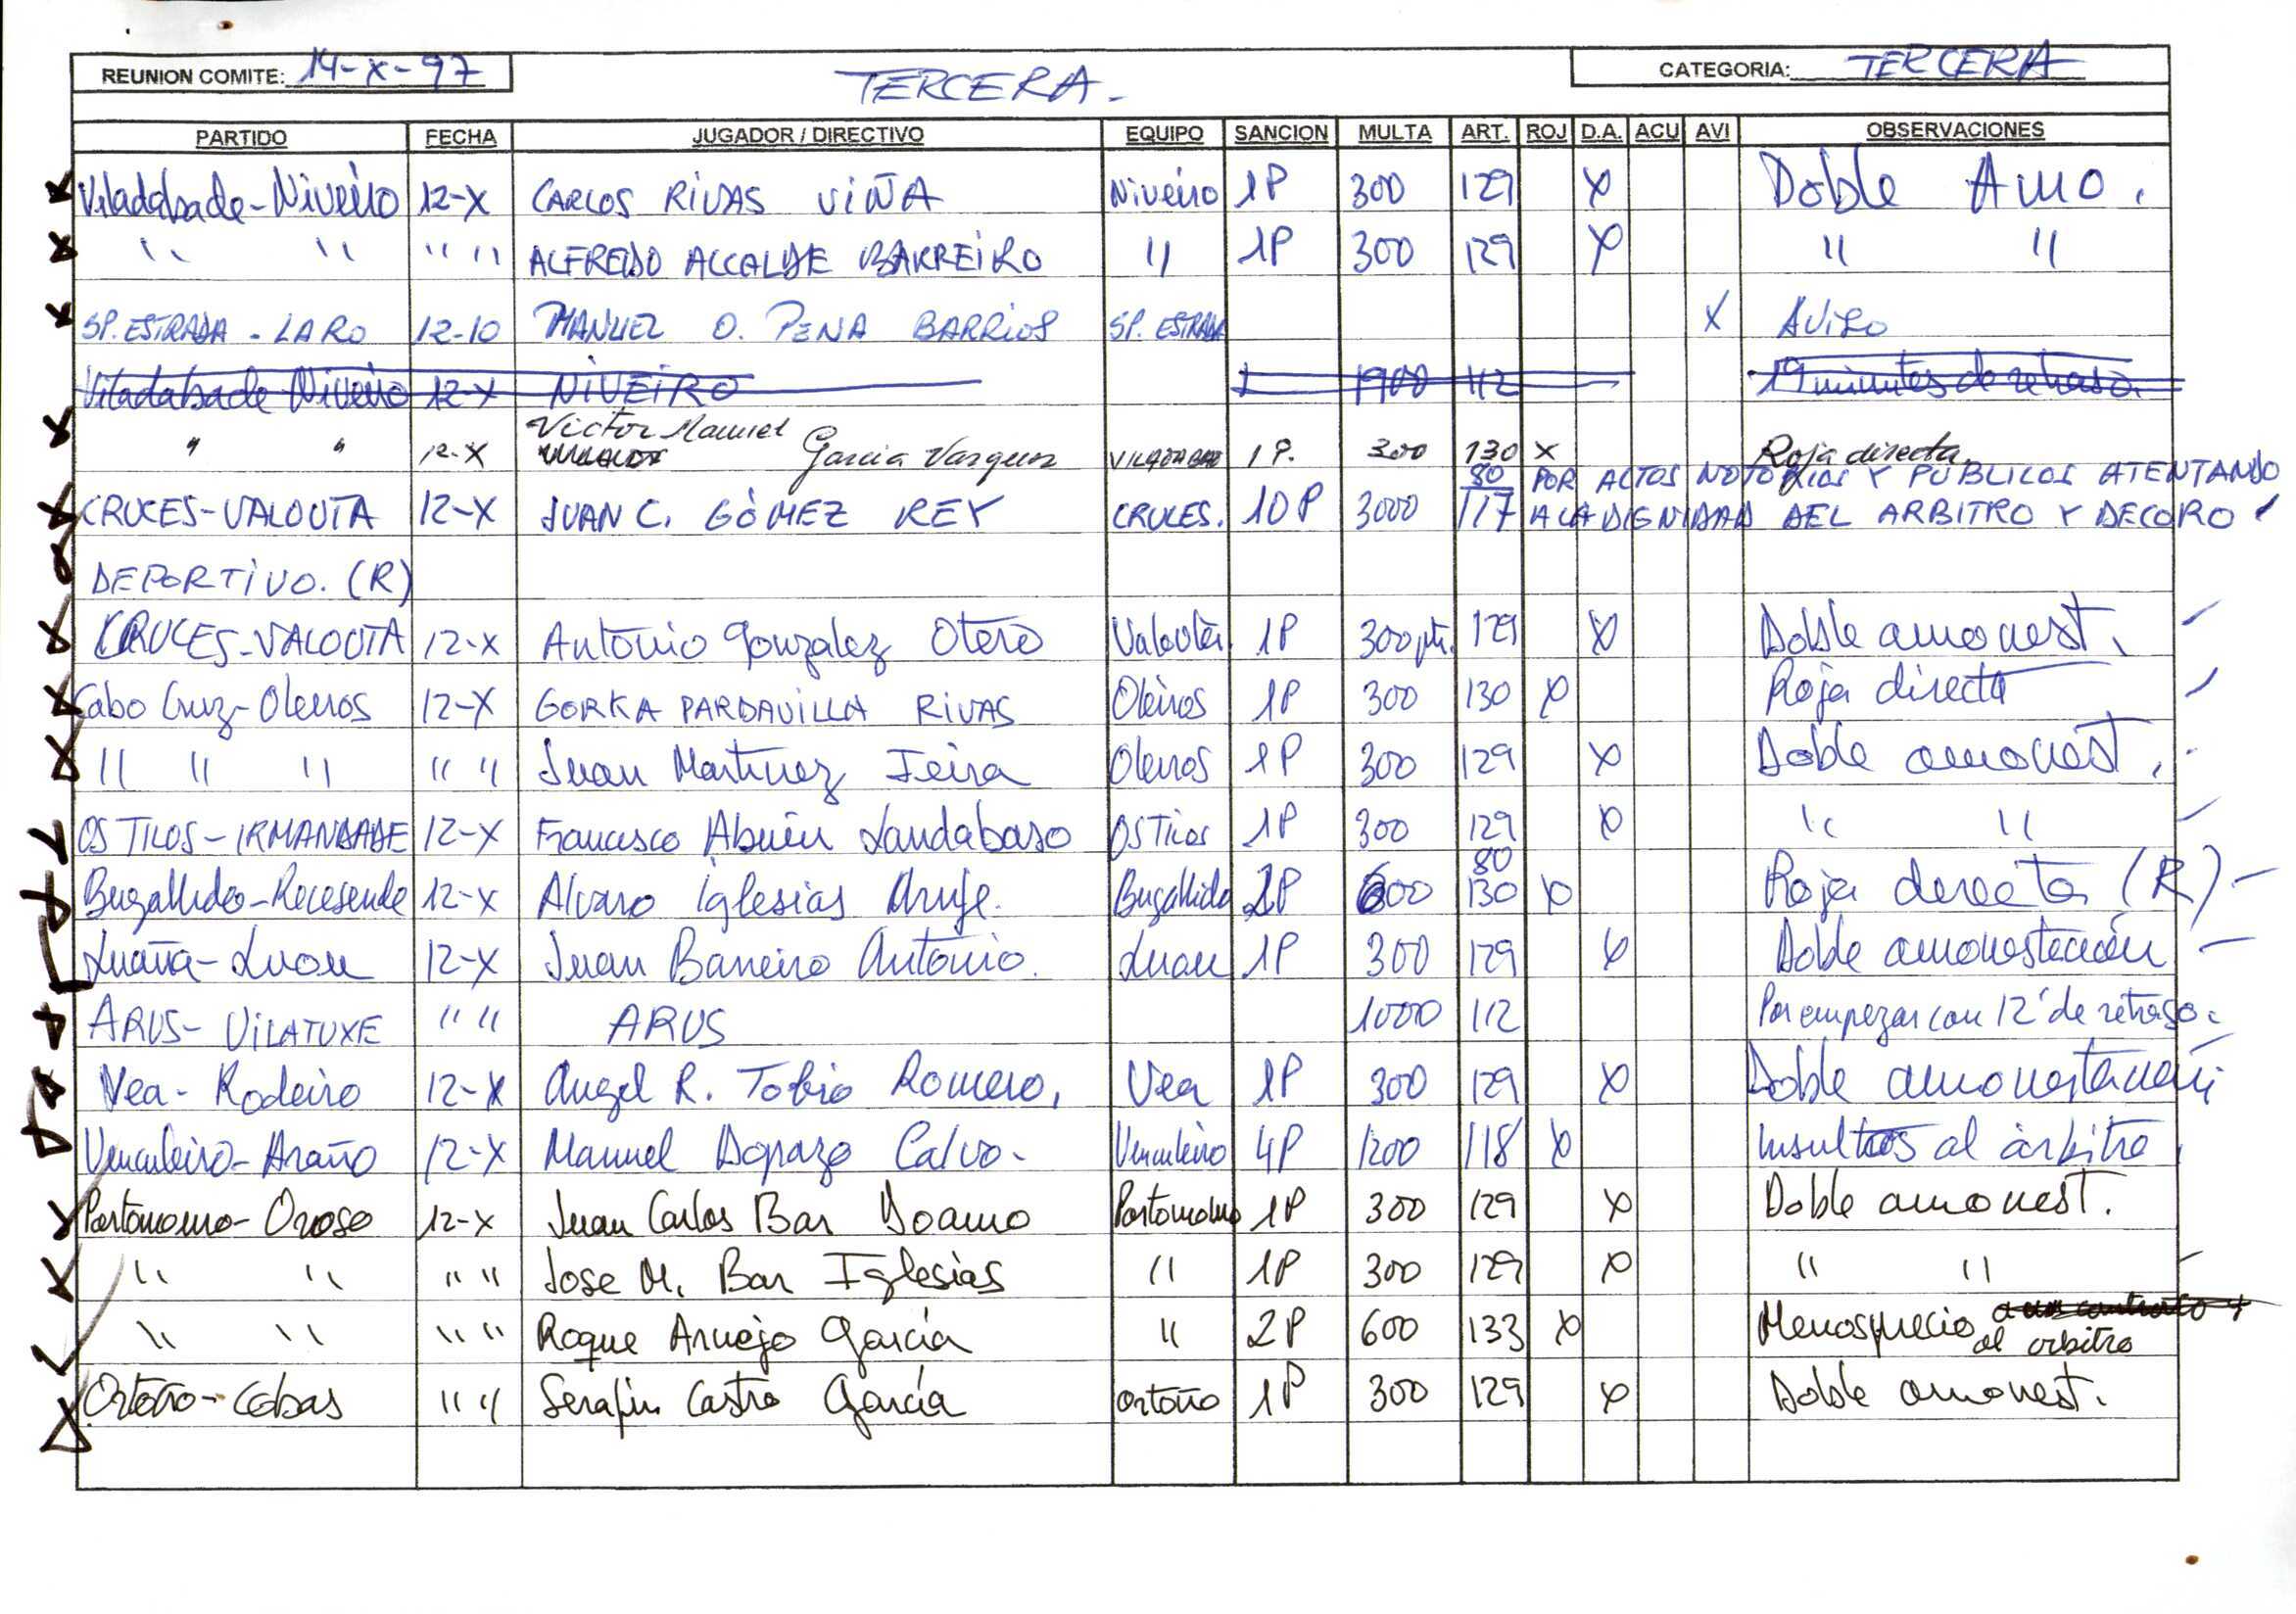 REUNION COMITE: 14-X-97 TERCERA.- CATEGORIA: TERCERA
PARTIDO FECHA JUGADOR / DIRECTIVO EQUIPO SANCION MULTA ART. ROJ D.A. ACU AVI OBSERVACIONES
Viladabade-Niveiro 12-X CARLOS RIVAS VIÑA Niveiro 1P 300 129 X Doble Amo.
" " " " ALFREDO ALCALDE BARREIRO " 1P 300 129 X " "
SP. ESTRADA - LARO 12-10 MANUEL O. PENA BARRIOS SP. ESTRADA X AViso
Viladabade Niveiro 12-X NIVEIRO 1900 112 19 minutos de retraso.
" " 12-X Victor Manuel Garcia Vazquez VILADABAD 1P. 300 130 X Roja directa.
CRUCES-VALOUTA 12-X JUAN C. GÓMEZ REY CRUCES. 10P 3000 80/117 POR ACTOS NOTORIOS Y PUBLICOS ATENTANDO
A LA DIGNIDAD DEL ARBITRO Y DECORO
DEPORTIVO. (R)
CRUCES-VALOUTA 12-X Antonio Gonzalez Otero Valouta. 1P 300 pts. 129 X Doble amonest.
Cabo Cruz-Oleiros 12-X GORKA PARDAVILLA RIVAS Oleiros 1P 300 130 X Roja directa
" " " " " Juan Martinez Feira Oleiros 1P 300 129 X Doble amonest.
OS TILOS-IRMANDADE 12-X Francisco Abuin Landabaso OS Tilos 1P 300 129 X " "
Bugallido-Recesende 12-X Alvaro Iglesias Bugallido 2P 600 80 130 X Roja directa (R)
Luaña-Luou 12-X Juan Barreiro Antonio. Luou 1P 300 129 X Doble amonestación
ARUS-VILATUXE " " ARUS 1000 112 Por empezar con 12' de retraso.
Vea-Rodeiro 12-X Angel R. Tobio Romero, Vea 1P 300 129 X Doble amonestación
12-X Manuel Dopazo Calvo- 4P 1200 118 X Insultos al árbitro
Portomouro-Oroso 12-X Juan Carlos Bar Portomouro 1P 300 129 X Doble amonest.
" " " " Jose M. Bar Iglesias " 1P 300 129 X " "
" " " " Roque Araujo García " 2P 600 133 X Menosprecio al arbitro
Ortoño-Cobas " " Serafin Castro García Ortoño 1P 300 129 X Doble amonest.